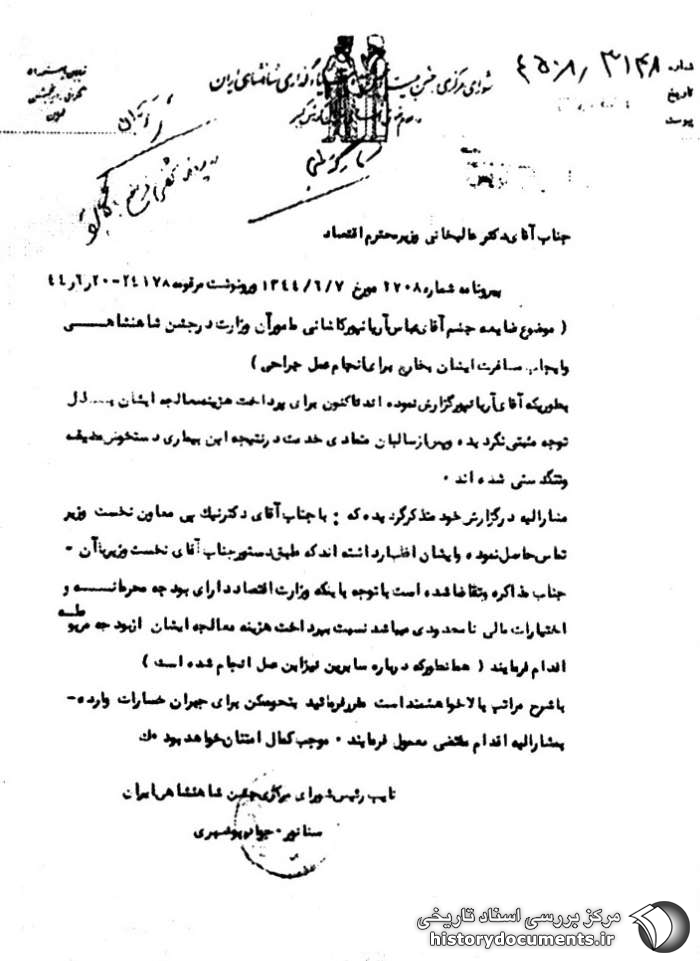 شماره ۳۱۴۸
تاریخ
پیوست
شورای مرکزی جشن بنیانگذاری شاهنشاهی ایران
جناب آقای دکتر عالیخانی وزیر محترم اقتصاد
پیرو نامه شماره ۲۷۰۸ مورخ ۱۳۴۴/۶/۷ و رونوشت مرقومه ۲۴۱۷۸-۲۰ر۶ر۴۴
( موضوع ضایعه چشم آقای عباس آریانپور کاشانی مامور آن وزارت در جشن شاهنشاهی
وایجاب مسافرت ایشان بخارج برای انجام عمل جراحی )
بطوریکه آقای آریانپور گزارش نموده اند تاکنون برای پرداخت هزینه معالجه ایشان بذل
توجه مثبتی نگردیده و پس از سالیان متمادی خدمت در نتیجه این بیماری دستخوش مضیقه
و تنگدستی شده اند .
مشارالیه در گزارش خود متذکر گردیده که : با جناب آقای دکتر نیک پی معاون نخست وزیر
تماس حاصل نموده و ایشان اظهار داشته اند که طبق دستور جناب آقای نخست وزیر با آن -
جناب مذاکره و تقاضا شده است با توجه باینکه وزارت اقتصاد دارای بودجه محرمانه و
اختیارات مالی نامحدودی میباشد نسبت بپرداخت هزینه معالجه ایشان از بودجه مربوطه
اقدام فرمایند ( همانطور که درباره سایرین نیز این عمل انجام شده است )
با شرح مراتب بالا خواهشمند است مقرر فرمائید بنحو ممکن برای جبران خسارات وارده -
بمشارالیه اقدام مقتضی معمول فرمایند . موجب کمال امتنان خواهد بود
نایب رئیس شورای مرکزی جشن شاهنشاهی ایران
سناتور - جواد بوشهری
مرکز بررسی اسناد تاریخی
historydocuments.ir